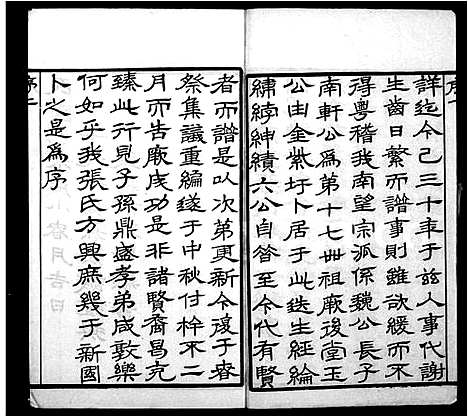 序一
詳迄今已三十年于兹人事代謝
生齒日繁而譜事則雖欲緩而不
得粤稽我南望宗派係魏公長子
南軒公為弟十七丗祖厥後堂玉
公由金紫圩卜居于此迭生經綸
繡綍紳績六公自昝至今代有賢
者而譜是以次弟更新今㳺于春
祭集議重編遂于中秋付梓不二
月而告厥成功是非諸賢裔昌克
臻此行見子孫鼎盛孝弟成敦樂
何如乎我張氏方興庶幾于新國
卜之是為序
序二